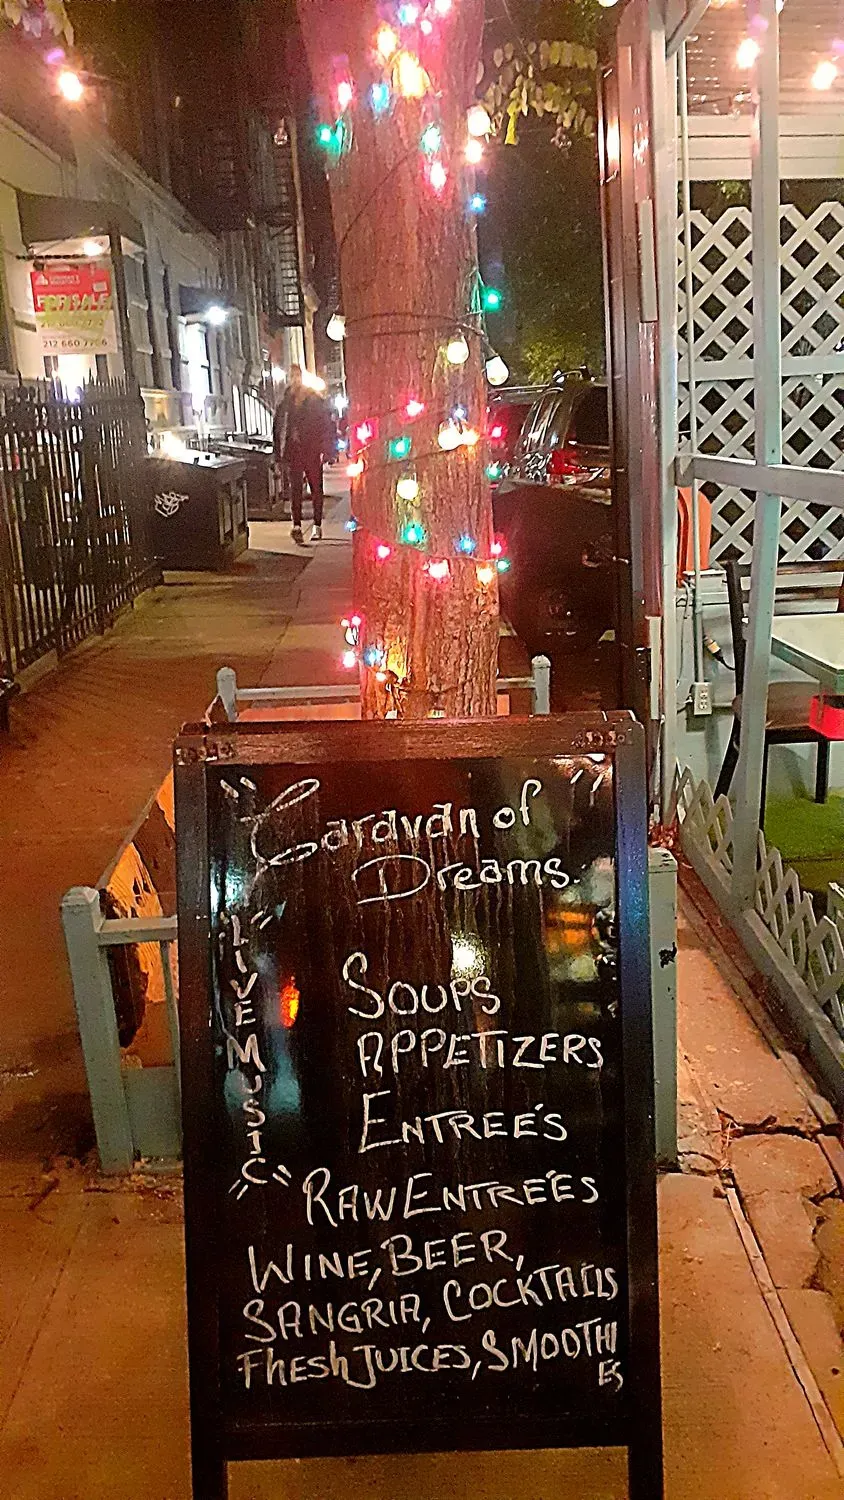 FOR SALE
212 660 7706
"Caravan of "
Dreams.
"LIVE MUSIC"
SOUPS
APPETIZERS
ENTREÉS
RAW ENTREÉS
WINE, BEER,
SANGRIA, COCKTAILS
FRESh JUICES, SMOOTHI
ES